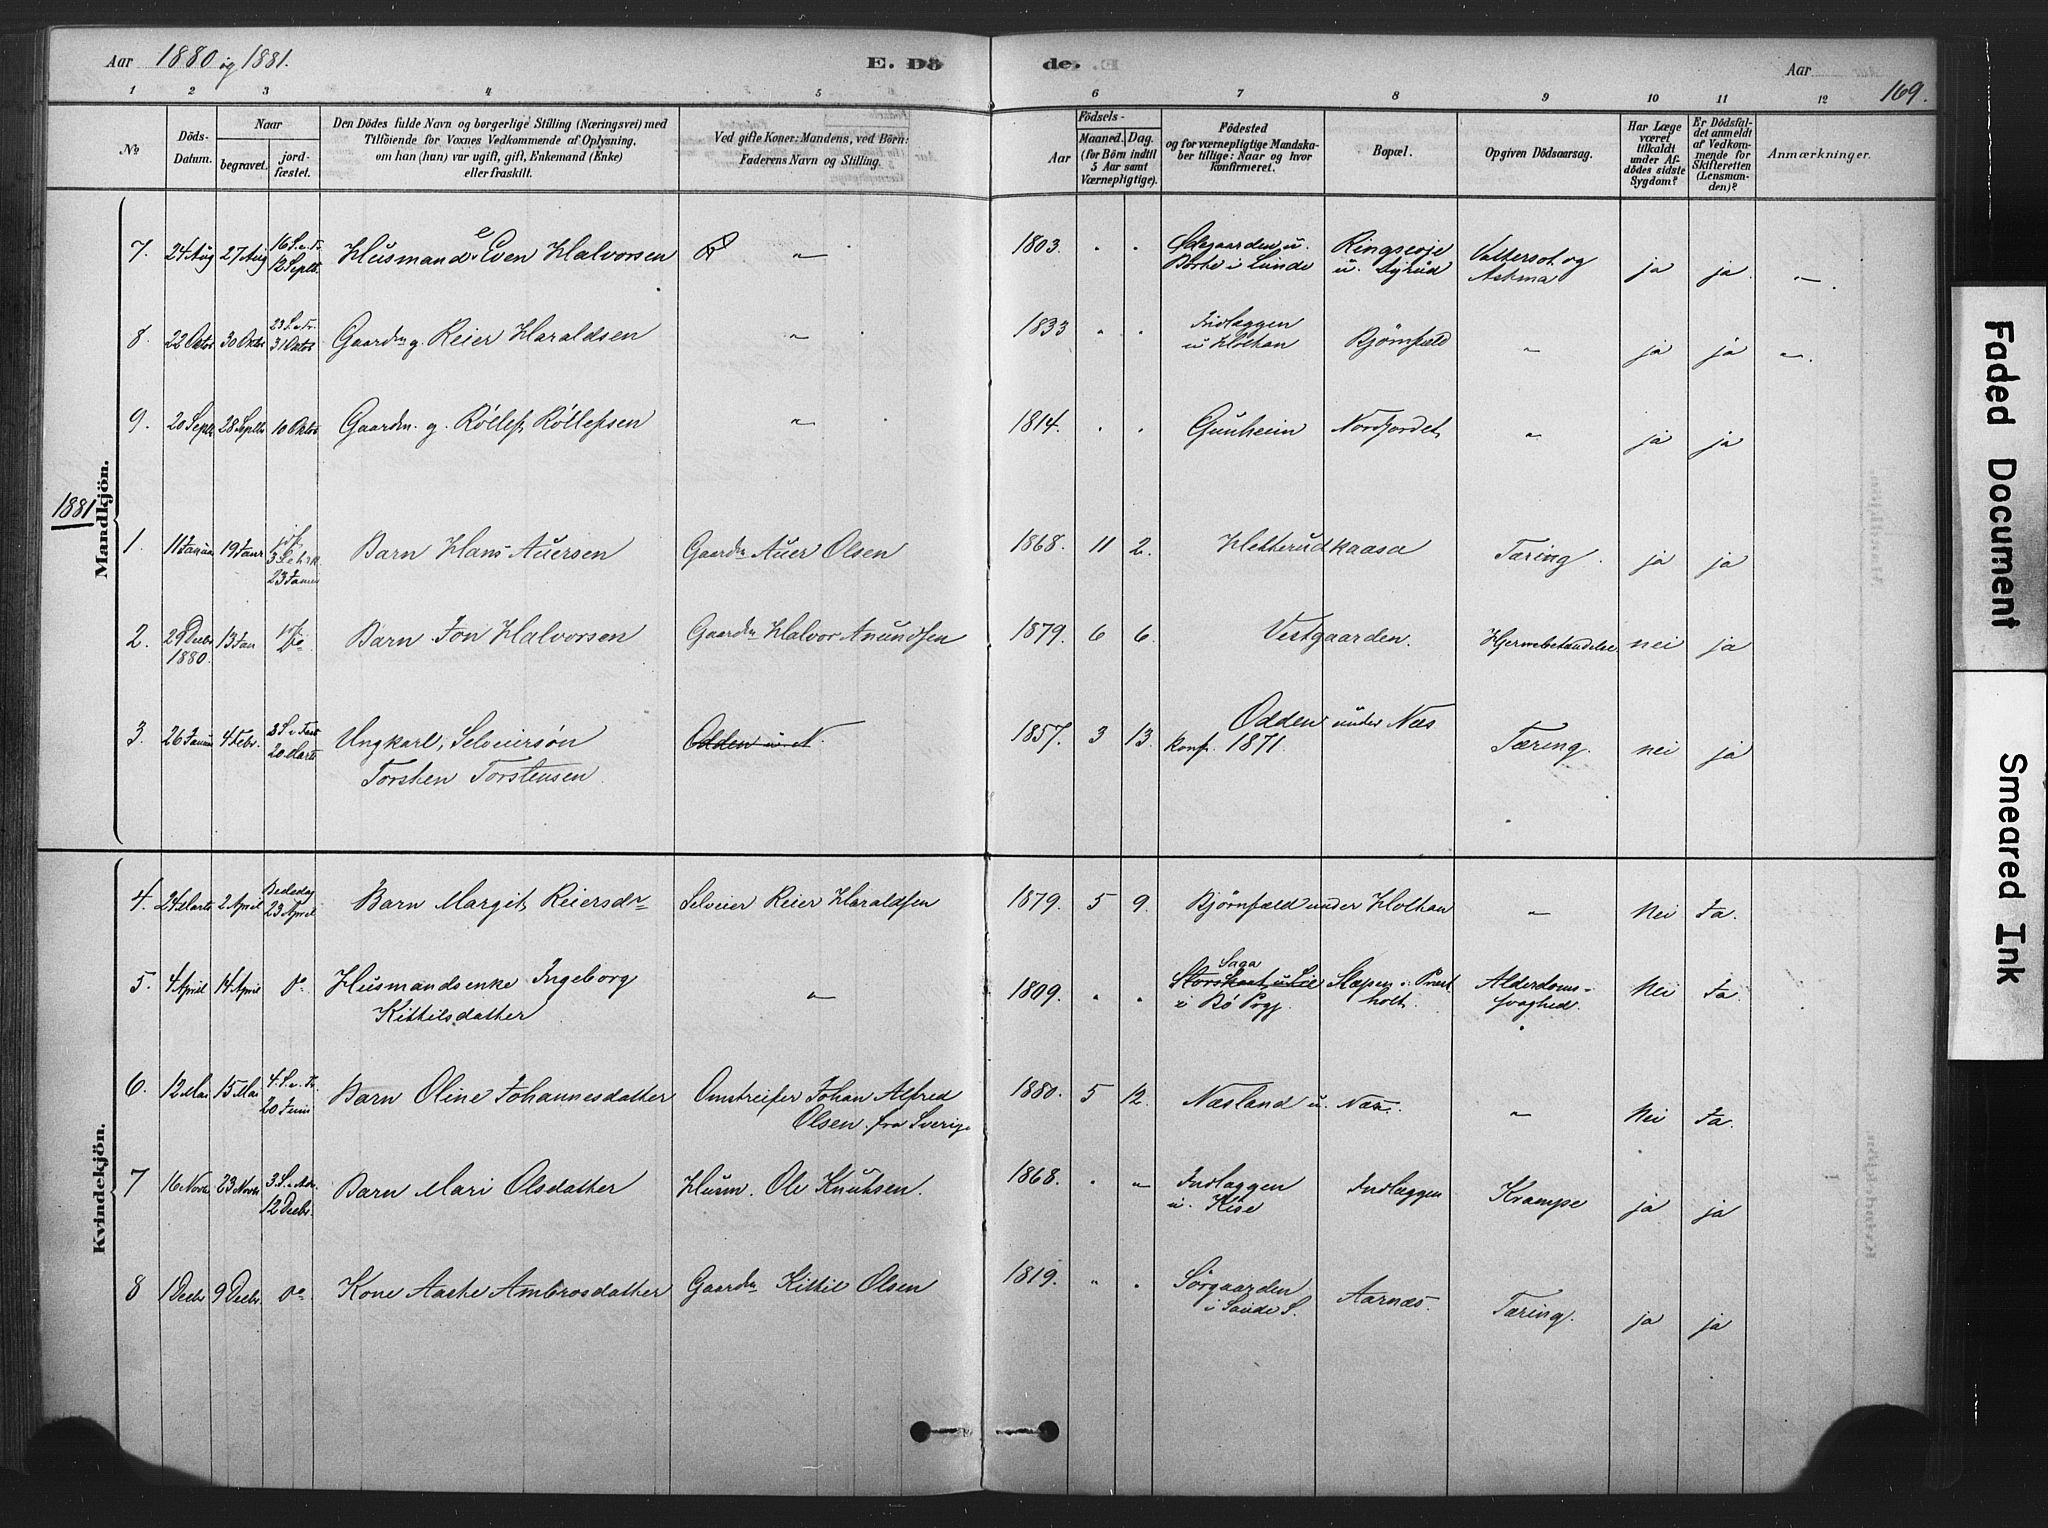 Aar 1880 og 1881.
E. Dö
de.
Aar
169.
1 2 3 4 5 6 7 8 9 10 11 12
No
Döds-Datum.
Naar
begravet.
jord-fæstet.
Den Dödes fulde Navn og borgerlige Stilling (Næringsvei) med
Tilföiende for Voxnes Vedkommende af Oplysning,
om han (hun) var ugift, gift, Enkemand (Enke)
eller fraskilt.
Ved gifte Koner: Mandens, ved Börn:
Faderens Navn og Stilling.
Födsels-
Aar
Maaned. Dag.
(for Börn indtil
5 Aar samt
Værnepligtige).
Födested
og for værnepligtige Mandska-
ber tillige: Naar og hvor
konfirmeret.
Bopæl.
Opgiven Dödsaarsag.
Har Læge
været
tilkaldt
under Af-
dödes sidste
Sygdom?
Er Dödsfal-
det anmeldt
af Vedkom-
mende for
Skifteretten
(Lensman-
den)?
Anmærkninger.
Mandkjön.
7. 24 Aug 27 Aug 16 S. e. Tr. 12 Septb. Husmand Even Halvorsen " 1803. " " Ødegaarden u. Borke i Lunde Ringsevje u. Dyrud Vattersot og Astma ja ja "
8. 22 Oktbr 30 Oktbr 23 S. e. Tr. 31 Oktbr Gaardm. g. Reier Haraldsen " 1833 " " Indlæggen u Holtan Bjørnfæld " ja ja "
9. 20 Septb 28 Septbr 10 Oktbr Gaardm. g. Rollef Rollefsen " 1814. " " Gunheim Nordjordet " ja ja
1881
1. 11 Januar 19 Janr 23 Januar Barn Hans Auersen Gaardm Auer Olsen 1868. 11 2. Hetterudkaasa Tæring. ja ja
2. 29 Decbr 1880. 13 Jan Do Barn Jon Halvorsen Gaardm Halvor Anundsen 1879. 6 6. Vestgaarden. Hjernebetændelse nei ja
3. 26 Januar 4 Febr. 3 S. i Fast 20 Marts Ungkarl, Selveiersøn Torsten Torstensen Odden u. N. 1857. 3 13. Odden under Næs konf. 1871. Tæring. nei ja
Kvindekjön.
4. 24 Marts 2 April Bededag 23 April Barn Margit Reiersdr Selveier Reier Haraldsen 1879. 5 9. Bjørnfæld under Holtan " Nei Ja.
5. 4 April 14 April Do Husmandsenke Ingeborg Kittilsdatter " 1809. " " Saga i Bø Pgj Alderdoms-svaghed. Nei Ja.
6. 12 Mai 15 Mai 4. S. e. Tr. 20 Juni Barn Oline Johannesdatter Omstreifer Johan Alfred Olsen fra Sverige 1880. 5 12. Næsland u. Næs. " Nei Ja.
7 16 Novbr 23 Novbr 3. S. i Adv. 12 Decbr. Barn Mari Olsdatter Husm. Ole Knutsen. 1868. " " Indlæggen u. Kise Indlæggen Krampe ja ja
8 1 Decbr 9 Decbr. Do Kone Aaste Ambrosdatter Gaardm Kittil Olsen 1819. " " Sørgaarden i Saude S. Aarnæs. Tæring. ja ja
Faded Document
Smeared Ink